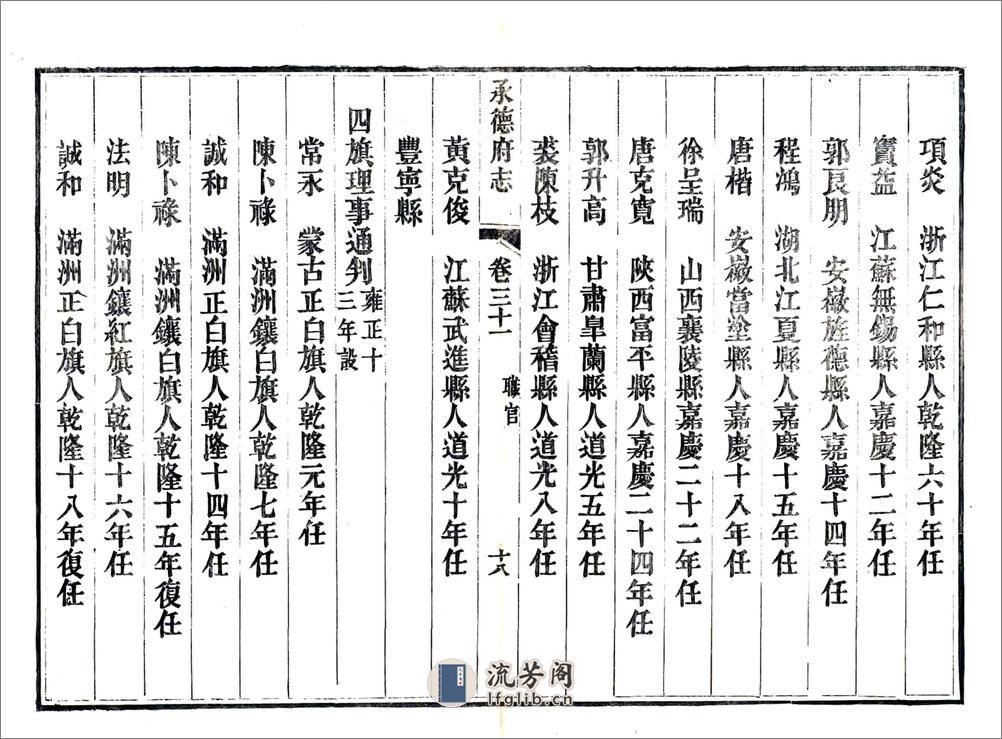 項炎　浙江仁和縣人乾隆六十年任
竇益　江蘇無錫縣人嘉慶十二年任
郭良朋　安徽旌德縣人嘉慶十四年任
程鴻　湖北江夏縣人嘉慶十五年任
唐楷　安徽當塗縣人嘉慶十八年任
徐呈瑞　山西襄陵縣嘉慶二十二年任
唐克寬　陝西富平縣人嘉慶二十四年任
郭升高　甘肅皇蘭縣人道光五年任
裘陳枝　浙江會稽縣人道光八年任
承德府志　卷三十一　職官　十八
黃克俊　江蘇武進縣人道光十年任
豐寧縣
四旗理事通判雍正十三年設
常永　蒙古正白旗人乾隆元年任
陳卜祿　滿洲鑲白旗人乾隆七年任
誠和　滿洲正白旗人乾隆十四年任
陳卜祿　滿洲鑲白旗人乾隆十五年復任
法明　滿洲鑲紅旗人乾隆十六年任
誠和　滿洲正白旗人乾隆十八年復任
流芳阁
lfglib.cn